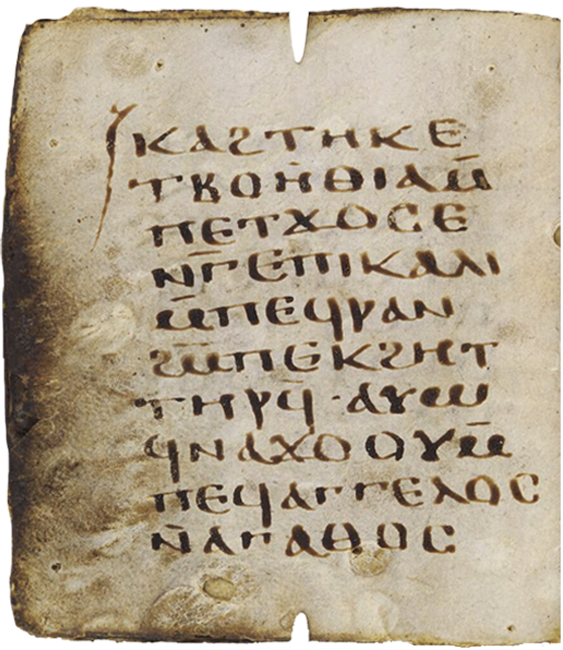 ⲕⲁϩⲧⲏⲕⲉ
ⲧⲃⲟⲏⲑⲓⲁⲙ̄
ⲡⲉⲧϫⲟⲥⲉ
ⲛⲅ̄ⲉⲡⲓⲕⲁⲗⲓ
ⲙ̄ⲡⲉϥⲣⲁⲛ
ϩⲙ̄ⲡⲉⲕϩⲏⲧ
ⲧⲏⲣϥ̄·ⲁⲩⲱ
ϥⲛⲁϫⲟⲟⲩⲙ̄
ⲡⲉϥⲁⲅⲅⲉⲗⲟⲥ
ⲛ̄ⲁⲅⲁⲑⲟⲥ